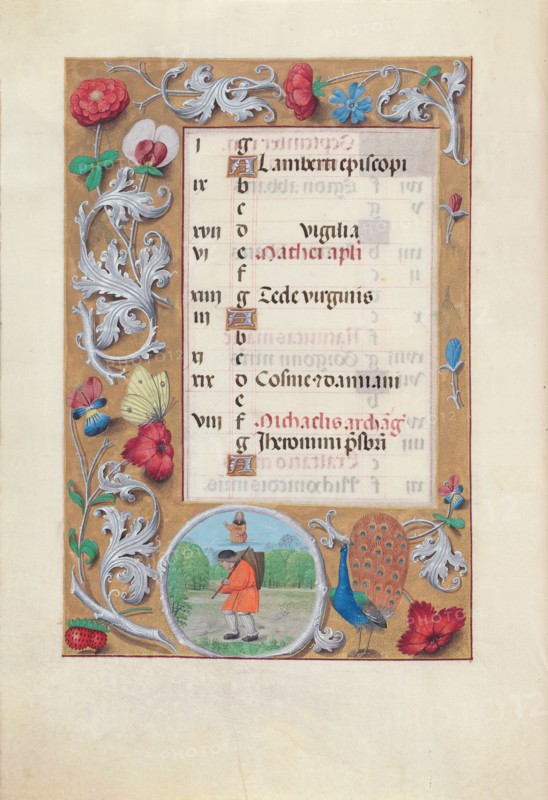 i g
A Lamberti episcopi
ix b
c
xvii d vigilia
vi e Mathei apli
f
xiiii g Tecle virginis
iii A
b
xi c
xix d Cosme ⁊ damiani
e
viii f Michaelis archãg̃
g Jheronimi p̃sbri̅
A